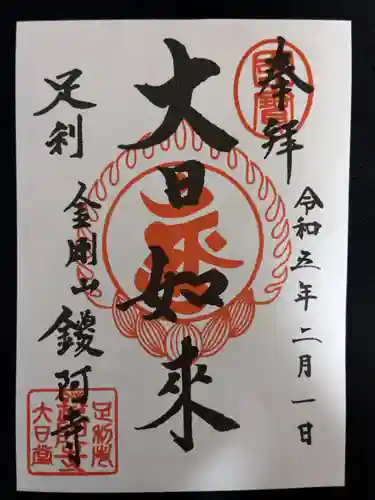 奉拝
令和五年二月一日
大日如來
足利
金剛山
鑁阿寺
大日堂